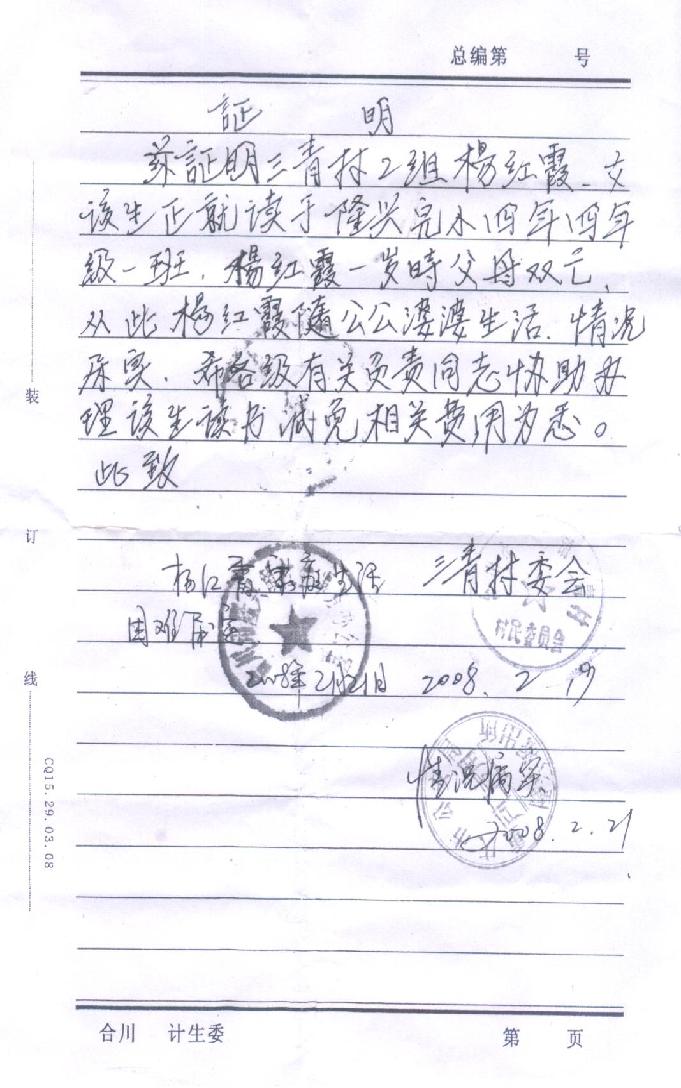 总编第 号
証 明
兹証明三青村2组楊红霞、女
该生正就读于隆兴完小四年四年
级一班，楊红霞一岁時父母双亡、
从此楊红霞随公公婆婆生活、情况
属实、希各级有关负责同志协助办
理该生读书减免相关费用为恳。
此致
杨红霞家庭生活 三青村委会
困难属实
村民委员会
2008年2月21日 2008. 2 19
情况属实
2008. 2. 21
装
订
线
CQ15.29.03.08
合川 计生委 第 页